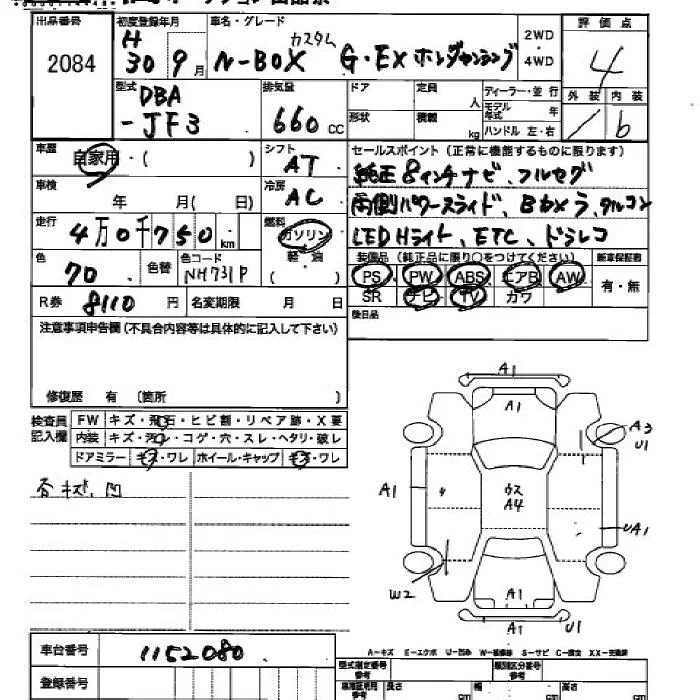 出品番号
2084
初度登録年月
H
30 9月
車名・グレード
N-BOX カスタム G・EX ホンダセンシング
2WD
・
4WD
評価点
4
外装 内装
b
型式
DBA
-JF3
排気量
660 CC
ドア
定員
人
形状
積載
kg
ディーラー・並行
モデル年式 年
ハンドル 左・右
車歴
自家用・( )
シフト
AT
セールスポイント(正常に機能するものに限ります)
純正8インチナビ、フルセグ
両側パワースライド、Bカメラ、クルコン
LEDHライト、ETC、ドラレコ
車検
年 月( 日)
冷房
AC
走行
4万0千750km
燃料
ガソリン
軽・油
( )
色
70
色替
色コード
NH731P
装備品(純正品に限り○をつけてください)
PS PW ABS エアB AW
SR ナビ TV カワ
新車保証書
有・無
R券 8110 円
名変期限 月 日
後日品
注意事項申告欄(不具合内容等は具体的に記入して下さい)
修復歴 有 〔箇所 〕
検査員
記入欄
FW キズ・飛石・ヒビ割・リペア跡・X要
内装 キズ・汚レ・コゲ・穴・スレ・ヘタリ・破レ
ドアミラー キズ・ワレ ホイール・キャップ キズ・ワレ
各キズ、凹
A1
A1
A3
U1
A1
ウス
A4
UA1
W2
A1
A1
U1
車台番号
1152080
登録番号
A-キズ E-エクボ U-凹み W-補修跡 S-サビ C-腐食 XX-交換済
型式指定番号
参考
類別区分番号
参考
車庫証明用
参考
長さ
cm
幅
cm
高さ
cm